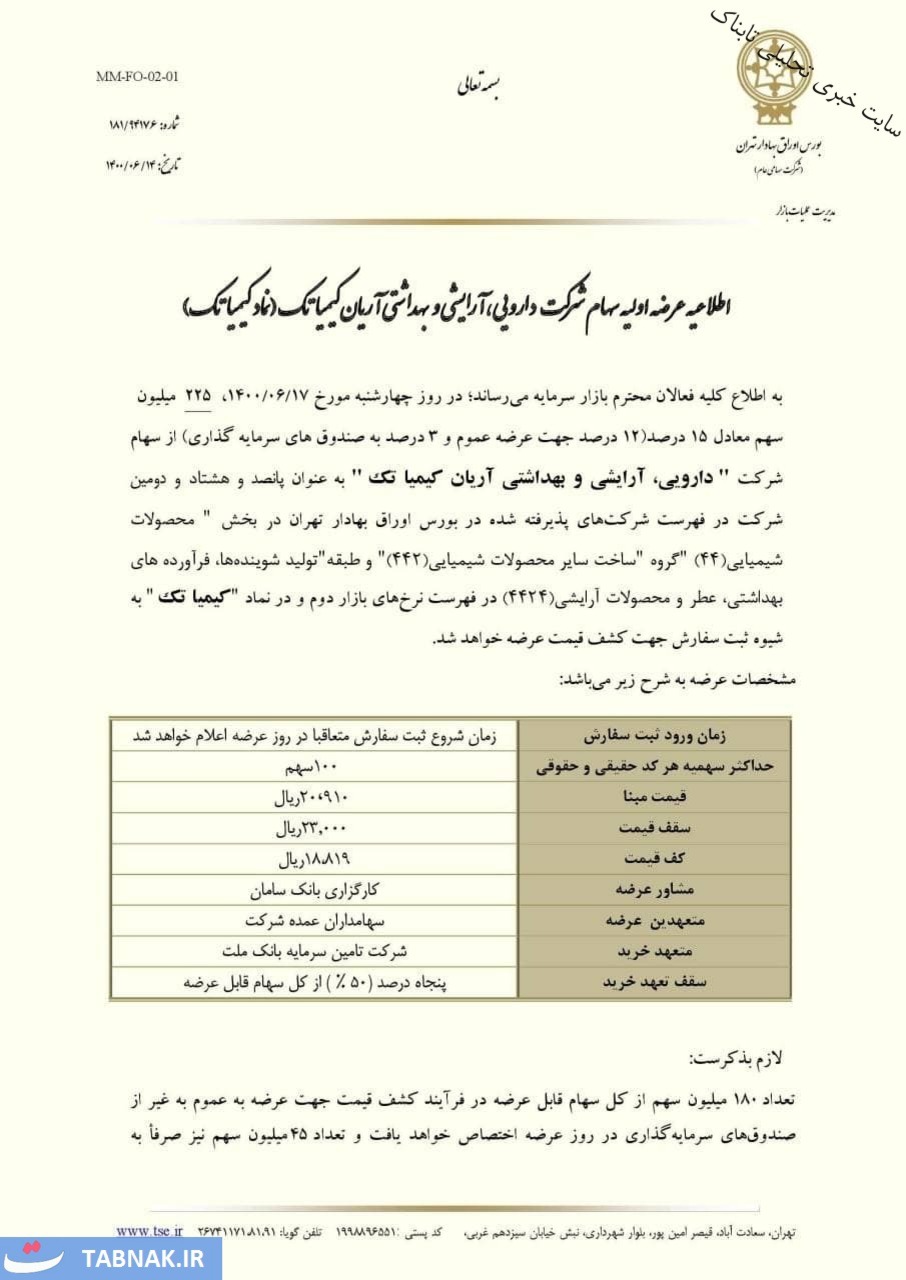 سایت خبری تحلیلی تابناک
بورس اوراق بهادار تهران
(شرکت سهامی عام)
مدیریت عملیات بازار
بسمه تعالی
MM-FO-02-01
شماره: ۱۸۱/۹۴۱۷۶
تاریخ: ۱۴۰۰/۰۶/۱۴
اطلاعیه عرضه اولیه سهام شرکت دارویی، آرایشی و بهداشتی آریان کیمیا تک (نماد کیمیا تک)
به اطلاع کلیه فعالان محترم بازار سرمایه می‌رساند؛ در روز چهارشنبه مورخ ۱۴۰۰/۰۶/۱۷، ۲۲۵ میلیون
سهم معادل ۱۵ درصد(۱۲ درصد جهت عرضه عموم و ۳ درصد به صندوق های سرمایه گذاری) از سهام
شرکت " دارویی، آرایشی و بهداشتی آریان کیمیا تک " به عنوان پانصد و هشتاد و دومین
شرکت در فهرست شرکت‌های پذیرفته شده در بورس اوراق بهادار تهران در بخش " محصولات
شیمیایی(۴۴) "گروه "ساخت سایر محصولات شیمیایی(۴۴۲)" و طبقه"تولید شوینده‌ها، فرآورده های
بهداشتی، عطر و محصولات آرایشی(۴۴۲۴) در فهرست نرخ‌های بازار دوم و در نماد "کیمیا تک " به
شیوه ثبت سفارش جهت کشف قیمت عرضه خواهد شد.
مشخصات عرضه به شرح زیر می‌باشد:
زمان ورود ثبت سفارش زمان شروع ثبت سفارش متعاقبا در روز عرضه اعلام خواهد شد
حداکثر سهمیه هر کد حقیقی و حقوقی ۱۰۰سهم
قیمت مبنا ۲۰،۹۱۰ریال
سقف قیمت ۲۳,۰۰۰ریال
کف قیمت ۱۸،۸۱۹ریال
مشاور عرضه کارگزاری بانک سامان
متعهدین عرضه سهامداران عمده شرکت
متعهد خرید شرکت تامین سرمایه بانک ملت
سقف تعهد خرید پنجاه درصد (۵۰ ٪ ) از کل سهام قابل عرضه
لازم بذکرست:
تعداد ۱۸۰ میلیون سهم از کل سهام قابل عرضه در فرآیند کشف قیمت جهت عرضه به عموم به غیر از
صندوق‌های سرمایه‌گذاری در روز عرضه اختصاص خواهد یافت و تعداد ۴۵میلیون سهم نیز صرفاً به
تهران، سعادت آباد، قیصر امین پور، بلوار شهرداری، نبش خیابان سیزدهم غربی، کد پستی :۱۹۹۸۸۹۶۵۵۱ تلفن گویا: ۲۶۷۴۱۱۷۱،۸۱،۹۱ www.tse.ir
TABNAK.IR